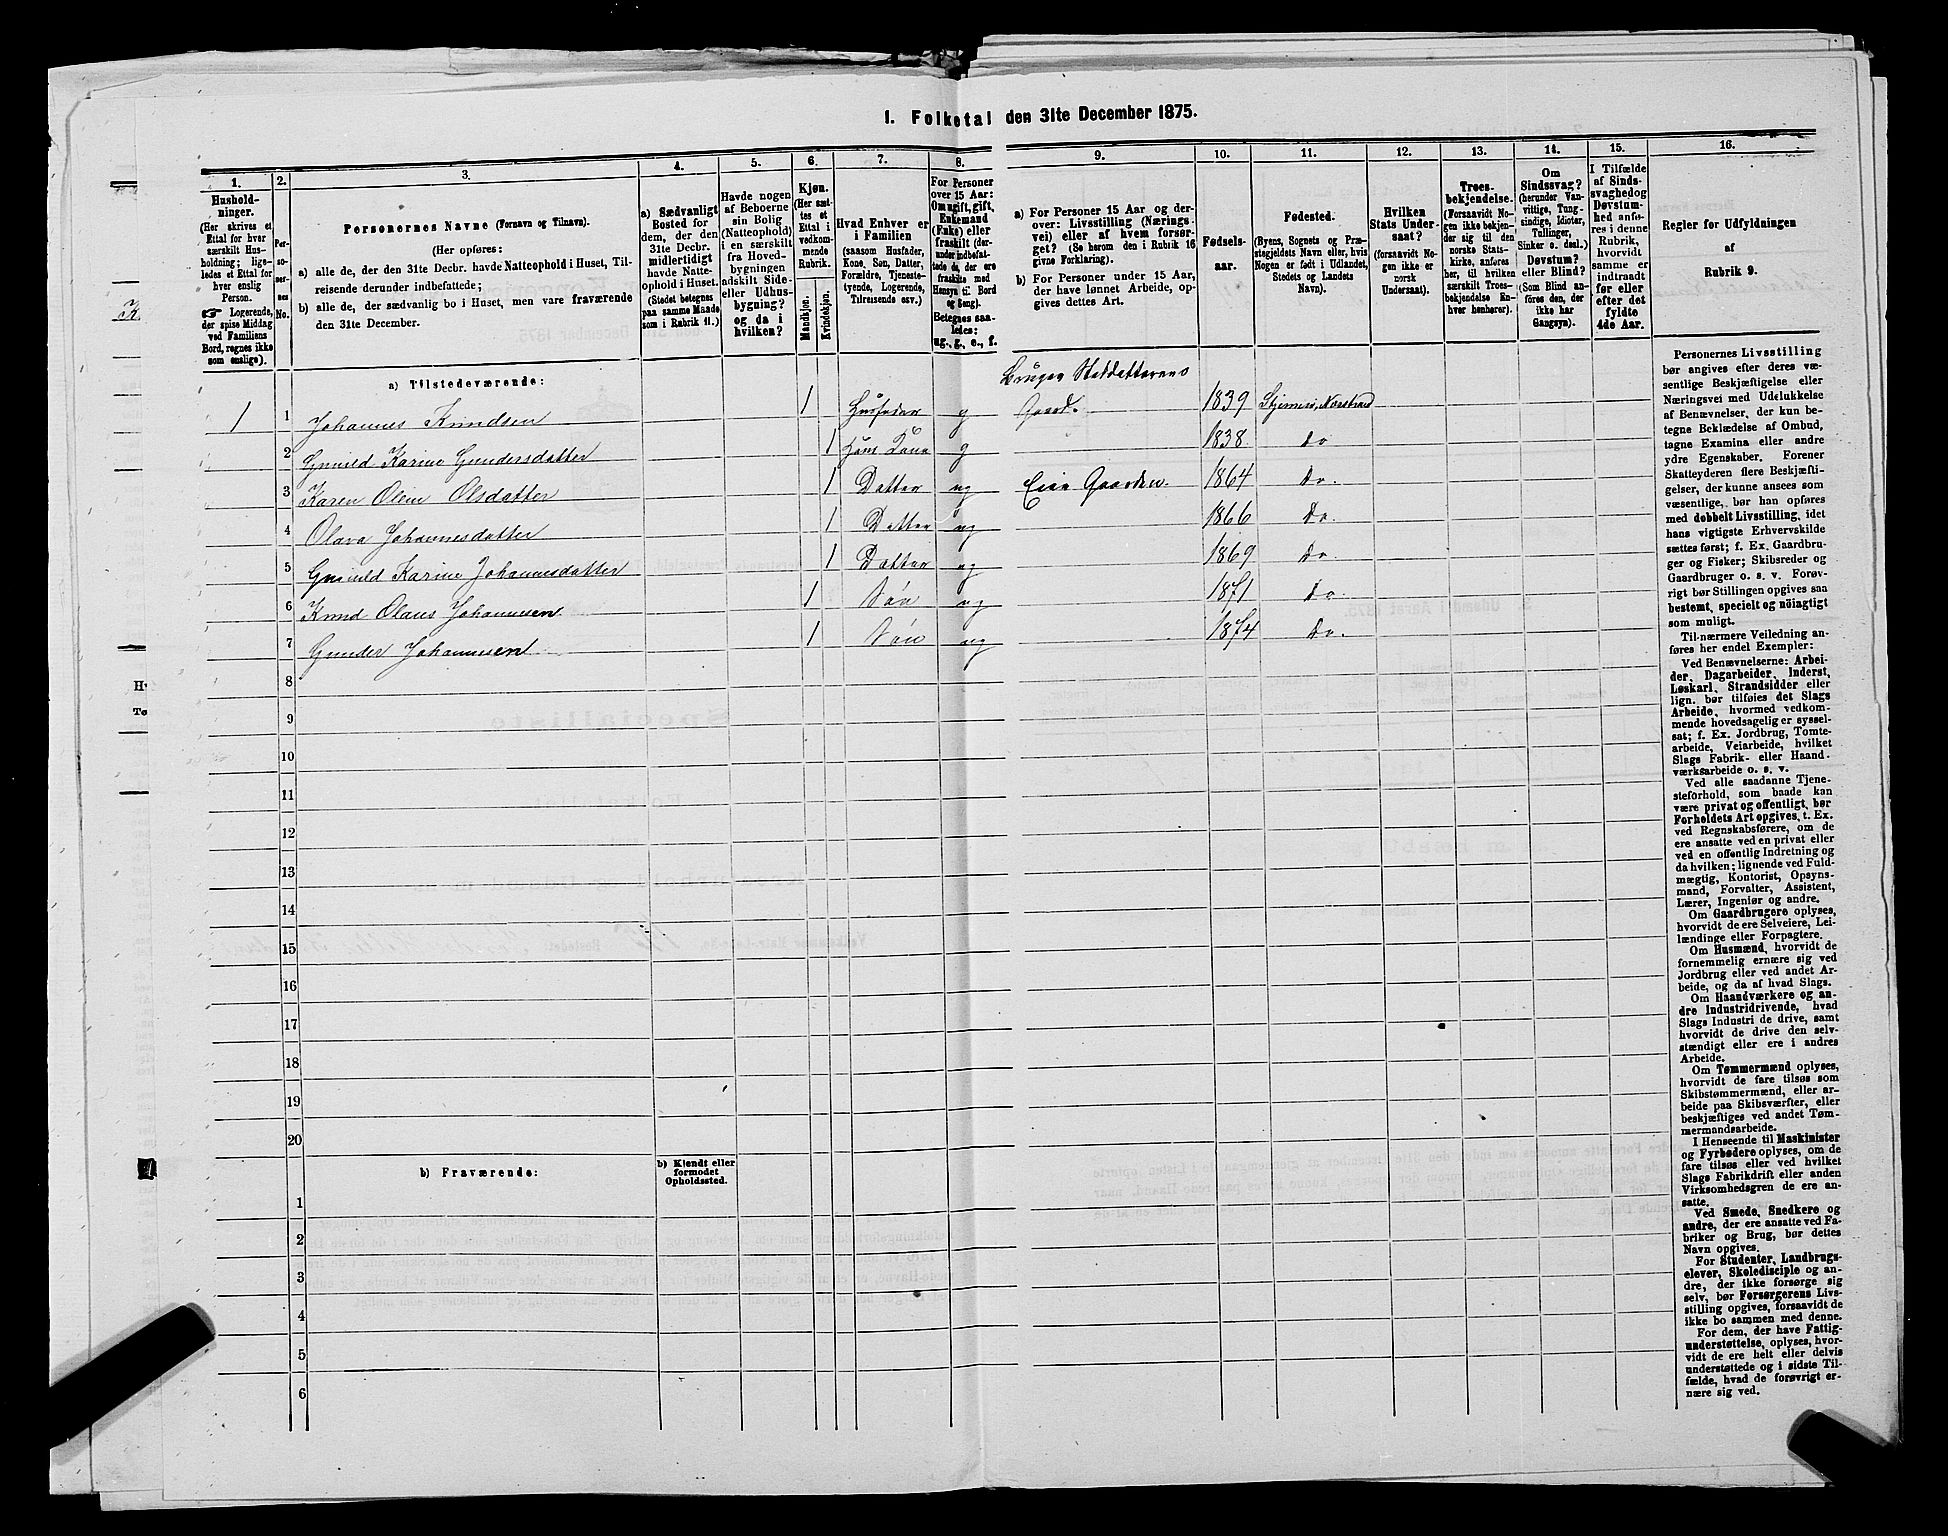 I. Folketal den 31te December 1875.
1.
2.
3.
4.
5.
6.
7.
8.
9.
10.
11.
12.
13.
14.
15.
16.
Hushold-
ninger.
(Her skrives et
Ettal for hver
særskilt Hus-
holdning; lige-
ledes et Ettal for
hver enslig
Person.
☞ Logerende,
der spise Middag
ved Familiens
Bord, regnes ikke
som enslige).
Per-
so-
ner-
nes
No.
Personernes Navne (Fornavn og Tilnavn).
(Her opføres:
a) alle de, der den 31te Decbr. havde Natteophold i Huset, Til-
reisende derunder indbefattede;
b) alle de, der sædvanlig bo i Huset, men vare fraværende
den 31te December.
a) Sædvanligt
Bosted for
dem, der den
31te Decbr.
midlertidigt
havde Natte-
ophold i Huset.
(Stedet betegnes
paa samme Maade
som i Rubrik 11.)
Havde nogen
af Beboerne
sin Bolig
(Natteophold)
i en særskilt
fra Hoved-
bygningen
adskilt Side-
eller Udhus-
bygning?
og da i
hvilken?
Kjøn.
(Her sæt-
tes et
Ettal i
vedkom-
mende
Rubrik.
Mandkjøn.
Kvindekjøn.
Hvad Enhver er
i Familien
(saasom Husfader,
Kone, Søn, Datter,
Forældre, Tjeneste-
tyende, Logerende,
Tilreisende osv.)
For Personer
over 15 Aar:
Om ugift, gift,
Enkemand
(Enke) eller
fraskilt (der-
under indbefat-
tede de, der ere
fraskilte med
Hensyn til Bord
og Seng).
Betegnes saa-
ledes:
ug., g., e., f.
a) For Personer 15 Aar og der-
over: Livsstilling (Nærings-
vei) eller af hvem forsør-
get? (Se herom den i Rubrik 16
givne Forklaring).
b) For Personer under 15 Aar,
der have lønnet Arbeide, op-
gives dettes Art.
Fødsels-
aar.
Fødested.
(Byens, Sognets og Præ-
stegjeldets Navn eller, hvis
Nogen er født i Udlandet,
Stedets og Landets
Navn).
Hvilken
Stats Under-
saat?
(forsaavidt No-
gen ikke er
norsk
Undersaat).
Troes-
bekjendelse.
(Forsaavidt No-
gen ikke bekjen-
der sig til den
norske Stats-
kirke, anføres
her, til hvilken
særskilt Troes-
bekjendelse En-
hver henhører).
Om
Sindssvag?
(herunder Van-
vittige, Tung-
sindige, Idioter,
Tullinger,
Sinker o. desl.)
Døvstum?
eller Blind? (
Som Blind an-
føres den, der
ikke har
Gangsyn).
I Tilfælde
af Sinds-
svaghed og
Døvstum-
hed anfø-
res i denne
Rubrik,
hvorvidt
samme er
indtraadt
før eller
efter det
fyldte
4de Aar.
Regler for Udfyldningen
af
Rubrik 9.
a) Tilstedeværende:
Bruger Steddatterens
1 1 Johannes Knudsen 1 Husfader g Gaard. 1839 Norstrand
2 Gunild Karine Gundersdatter 1 Hans Kone g 1838 Do
3 Karen Oline Olsdatter 1 Datter ug Eier Gaarden. 1864 Do.
4 Olava Johannesdatter 1 Datter ug 1866 Do.
5 Gunild Karine Johannesdatter 1 Datter ug 1869 Do
6 Knud Olaus Johannesen 1 Søn ug 1871 Do.
7 Gunder Johannesen 1 Søn ug 1874 Do.
8
9
10
11
12
13
14
15
16
17
18
19
20
b) Fraværende:
b) Kjendt eller
formodet
Opholdssted.
1
2
3
4
5
6
Personernes Livsstilling
bør angives efter deres væ-
sentlige Beskjæftigelse eller
Næringsvei med Udelukkelse
af Benævnelser, der kun be-
tegne Beklædelse af Ombud,
tagne Examina eller andre
ydre Egenskaber. Forener
Skatteyderen flere Beskjæfti-
gelser, der kunne ansees som
væsentlige, bør han opføres
med dobbelt Livsstilling, idet
hans vigtigste Erhvervskilde
sættes først; f. Ex. Gaardbru-
ger og Fisker; Skibsreder og
Gaardbruger o. s. v. Forøv-
rigt bør Stillingen opgives saa
bestemt, specielt og nøiagtigt
som muligt.
Til nærmere Veiledning an-
føres her endel Exempler:
Ved Benævnelserne: Arbei-
der, Dagarbeider, Inderst,
Løskarl, Strandsidder eller
lign. bør tilføies det Slags
Arbeide, hvormed vedkom-
mende hovedsagelig er syssel-
sat; f. Ex. Jordbrug, Tomte-
arbeide, Veiarbeide, hvilket
Slags Fabrik- eller Haand-
værksarbeide o. s. v.
Ved alle saadanne Tjene-
steforhold, som baade kan
være privat og offentligt, bør
Forholdets Art opgives, t. Ex.
ved Regnskabsførere, om de
ere ansatte ved en privat eller
ved en offentlig Indretning og
da hvilken; lignende ved Fuld-
mægtig, Kontorist, Opsyns-
mand, Forvalter, Assistent,
Lærer, Ingeniør og andre.
Om Gaardbrugere oplyses,
hvorvidt de ere Selveiere, Lei-
lændinge eller Forpagtere.
Om Husmænd, hvorvidt de
fornemmelig ernære sig ved
Jordbrug eller ved andet Ar-
beide, og da af hvad Slags.
Om Haandværkere og an-
dre Industridrivende, hvad
Slags Industri de drive, samt
hvorvidt de drive den selv-
stændigt eller ere i andres
Arbeide.
Om Tømmermænd oplyses,
hvorvidt de fare tilsøs som
Skibstømmermænd, eller ar-
beide paa Skibsværfter, eller
beskjæftiges ved andet Tøm-
mermandsarbeide.
I Henseende til Maskinister
og Fyrbødere oplyses, om de
fare tilsøs eller ved hvilket
Slags Fabrikdrift eller anden
Virksomhedsgren de ere an-
satte.
Ved Smede, Snedkere og
andre, der ere ansatte ved Fa-
briker og Brug, bør dettes
Navn opgives.
For Studenter, Landbrugs-
elever, Skoledisciple og an-
dre, der ikke forsørge sig
selv, bør Forsørgerens Livs-
stilling opgives, forsaavidt de
ikke bo sammen med denne.
For dem, der have Fattig-
understøttelse, oplyses, hvor-
vidt de ere helt eller delvis
understøttede og i sidste Til-
fælde, hvad de forøvrigt er-
nære sig ved.